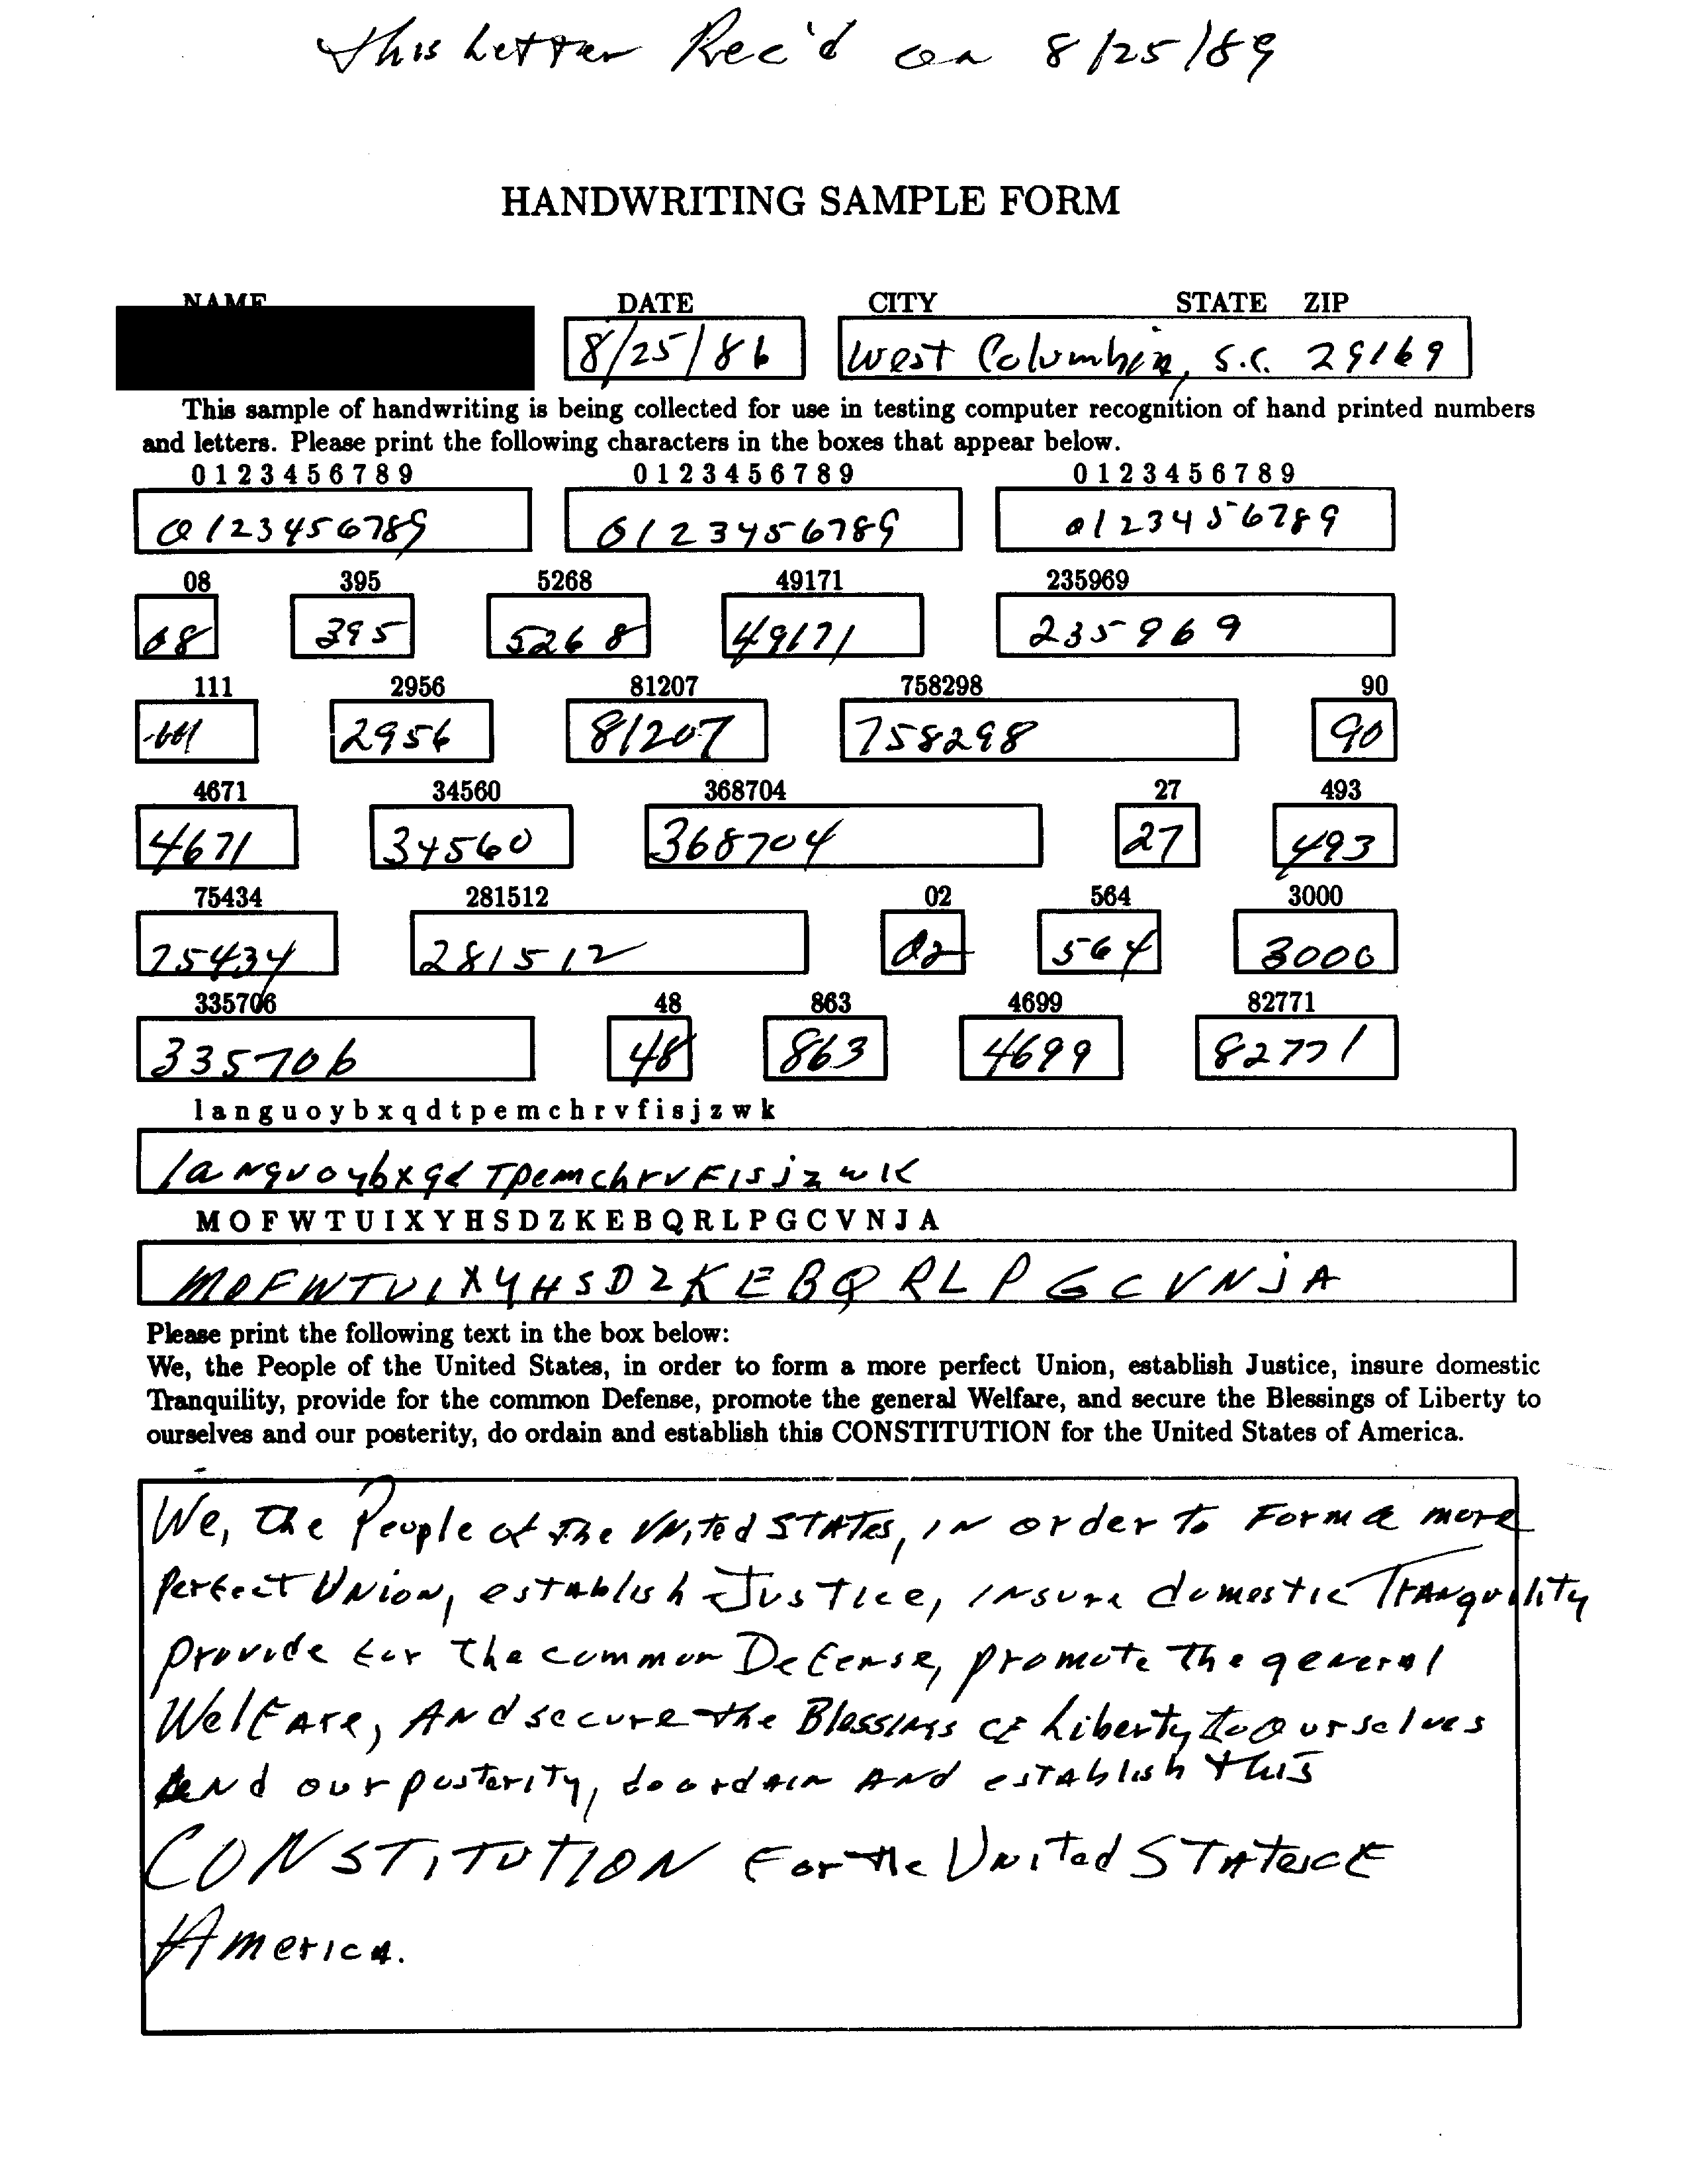 This Letter Rec'd on 8/25/89
HANDWRITING SAMPLE FORM
NAME DATE CITY STATE ZIP
8/25/86 West Columbia, S.C. 29169
This sample of handwriting is being collected for use in testing computer recognition of hand printed numbers
and letters. Please print the following characters in the boxes that appear below.
0 1 2 3 4 5 6 7 8 9 0 1 2 3 4 5 6 7 8 9 0 1 2 3 4 5 6 7 8 9
0123456789 0123456789 0123456789
08 395 5268 49171 235969
08 395 5268 49171 235969
111 2956 81207 758298 90
111 2956 81207 758298 90
4671 34560 368704 27 493
4671 34560 368704 27 493
75434 281512 02 564 3000
75434 281512 02 564 3000
335706 48 863 4699 82771
335706 48 863 4699 82771
l a n g u o y b x q d t p e m c h r v f i s j z w k
languoybxqdTpemchrvFisjzwK
M O F W T U I X Y H S D Z K E B Q R L P G C V N J A
MOFWTUIXYHSDZKEBQRLPGCVNJA
Please print the following text in the box below:
We, the People of the United States, in order to form a more perfect Union, establish Justice, insure domestic
Tranquility, provide for the common Defense, promote the general Welfare, and secure the Blessings of Liberty to
ourselves and our posterity, do ordain and establish this CONSTITUTION for the United States of America.
We, the People of the United STATes, in order to Form a more
perfect Union, establish Justice, insure domestic Tranquility
provide for the common Defense, promote the general
Welfare, And secure the Blessings of Liberty to ourselves
And our posterity, do ordain And establish this
CONSTITUTION For the United STATes of
America.